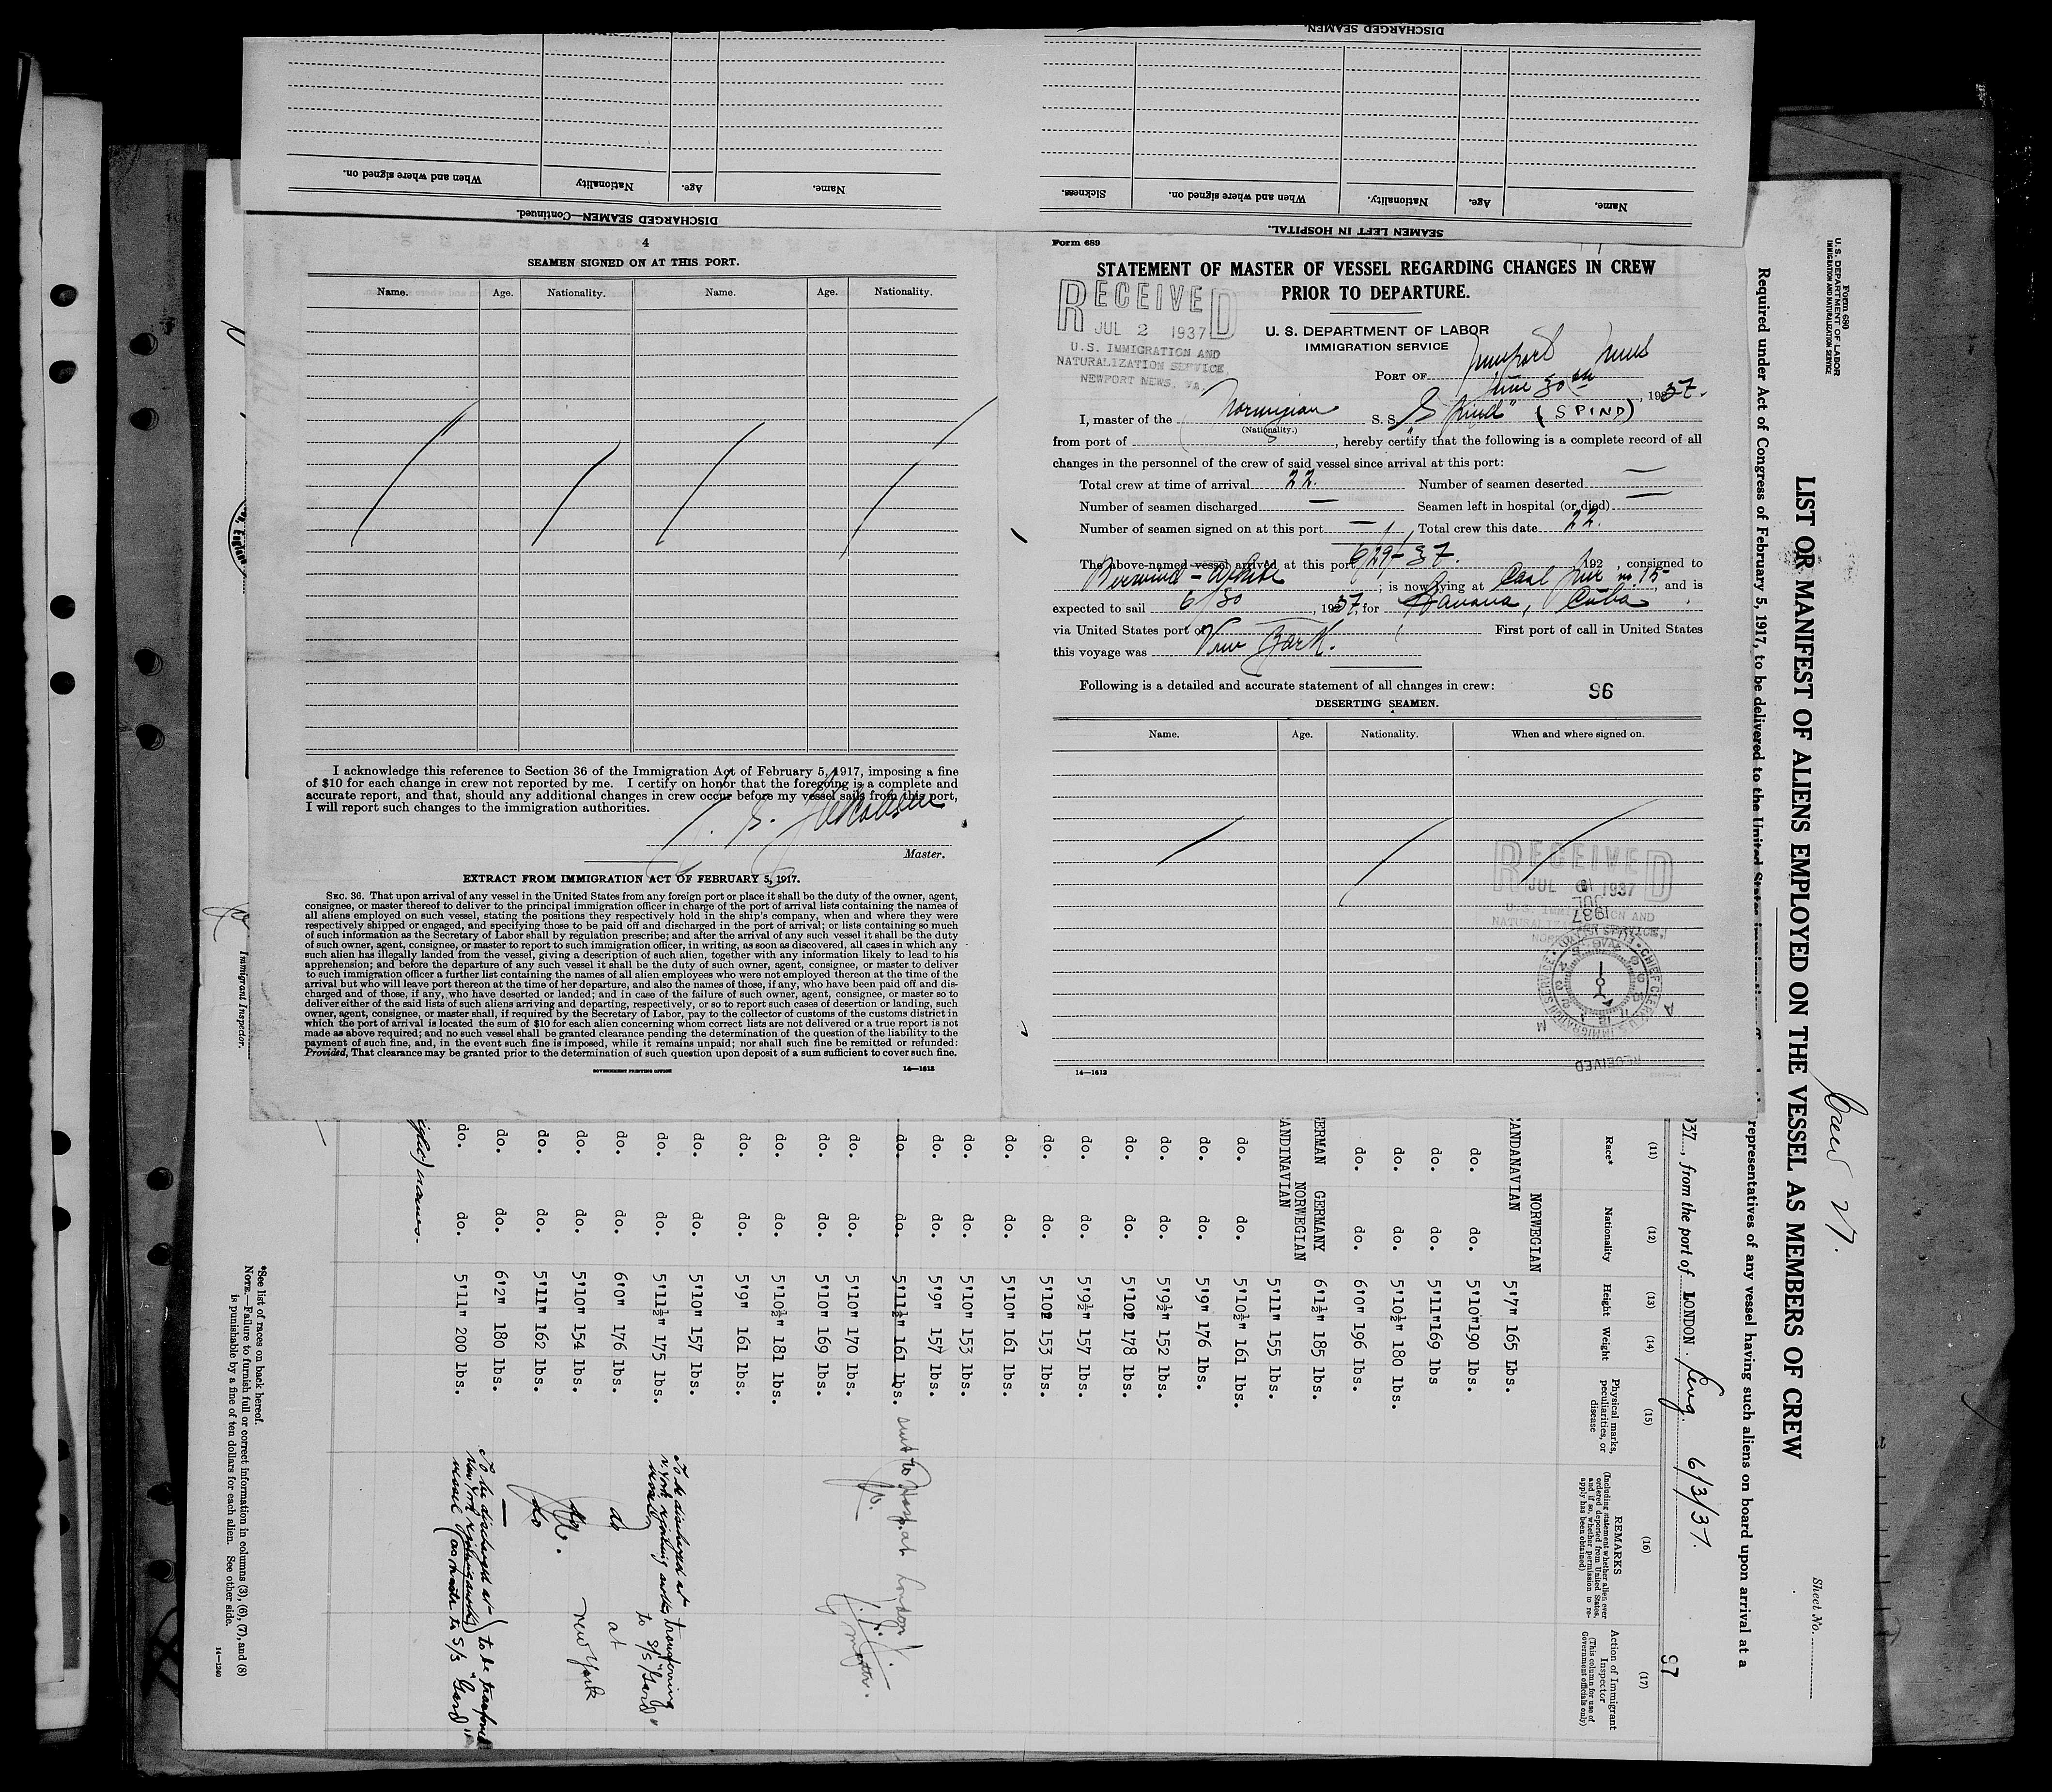 DISCHARGED SEAMEN
When and where signed on.
Nationality
Age.
Name.
DISCHARGED SEAMEN—Continued.
Sickness.
When and where signed on.
Nationality.
Age.
Name.
SEAMEN LEFT IN HOSPITAL.
4
SEAMEN SIGNED ON AT THIS PORT.
Name. Age. Nationality. Name. Age. Nationality.
I acknowledge this reference to Section 36 of the Immigration Act of February 5, 1917, imposing a fine
of $10 for each change in crew not reported by me. I certify on honor that the foregoing is a complete and
accurate report, and that, should any additional changes in crew occur before my vessel sails from this port,
I will report such changes to the immigration authorities.
Master.
EXTRACT FROM IMMIGRATION ACT OF FEBRUARY 5, 1917.
SEC. 36. That upon arrival of any vessel in the United States from any foreign port or place it shall be the duty of the owner, agent,
consignee, or master thereof to deliver to the principal immigration officer in charge of the port of arrival lists containing the names of
all aliens employed on such vessel, stating the positions they respectively hold in the ship's company, when and where they were
respectively shipped or engaged, and specifying those to be paid off and discharged in the port of arrival; or lists containing so much
of such information as the Secretary of Labor shall by regulation prescribe; and after the arrival of any such vessel it shall be the duty
of such owner, agent, consignee, or master to report to such immigration officer, in writing, as soon as discovered, all cases in which any
such alien has illegally landed from the vessel, giving a description of such alien, together with any information likely to lead to his
apprehension; and before the departure of any such vessel it shall be the duty of such owner, agent, consignee, or master to deliver
to such immigration officer a further list containing the names of all alien employees who were not employed thereon at the time of the
arrival but who will leave port thereon at the time of her departure, and also the names of those, if any, who have been paid off and dis-
charged and of those, if any, who have deserted or landed; and in case of the failure of such owner, agent, consignee, or master so to
deliver either of the said lists of such aliens arriving and departing, respectively, or so to report such cases of desertion or landing, such
owner, agent, consignee, or master shall, if required by the Secretary of Labor, pay to the collector of customs of the customs district in
which the port of arrival is located the sum of $10 for each alien concerning whom correct lists are not delivered or a true report is not
made as above required; and no such vessel shall be granted clearance pending the determination of the question of the liability to the
payment of such fine, and, in the event such fine is imposed, while it remains unpaid; nor shall such fine be remitted or refunded:
Provided, That clearance may be granted prior to the determination of such question upon deposit of a sum sufficient to cover such fine.
GOVERNMENT PRINTING OFFICE 14—1613
Form 689
STATEMENT OF MASTER OF VESSEL REGARDING CHANGES IN CREW
PRIOR TO DEPARTURE.
RECEIVED
JUL 2 1937
U.S. IMMIGRATION AND
NATURALIZATION SERVICE,
NEWPORT NEWS, VA.
U. S. DEPARTMENT OF LABOR
IMMIGRATION SERVICE
PORT OF Newport News
June 30th, 1937.
I, master of the Norwegian S. S. "Spind" (SPIND)
(Nationality.)
from port of , hereby certify that the following is a complete record of all
changes in the personnel of the crew of said vessel since arrival at this port:
Total crew at time of arrival 22. Number of seamen deserted —
Number of seamen discharged — Seamen left in hospital (or died) —
Number of seamen signed on at this port — Total crew this date 22.
The above-named vessel arrived at this port 6/29-37. 192 , consigned to
Berwind-White ; is now lying at Coal pier no. 15 , and is
expected to sail 6/30 , 1937, for Havana, Cuba
via United States port of — First port of call in United States
this voyage was New York.
Following is a detailed and accurate statement of all changes in crew: 96
DESERTING SEAMEN.
Name. Age. Nationality. When and where signed on.
RECEIVED
JUL 1937
14—1613
Form 680
U. S. DEPARTMENT OF LABOR
IMMIGRATION AND NATURALIZATION SERVICE
Crew 27.
Sheet No.
LIST OR MANIFEST OF ALIENS EMPLOYED ON THE VESSEL AS MEMBERS OF CREW
Required under Act of Congress of February 5, 1917, to be delivered to the United States
representatives of any vessel having such aliens on board upon arrival at a
937, from the port of LONDON. Eng. 6/3/37. 97
(11) (12) (13) (14) (15) (16) (17)
Race* Nationality Height Weight Physical marks, peculiarities, or disease
REMARKS (Including statement whether alien ever ordered deported from United States, and if so, whether permission to re-apply has been obtained)
Action of Immigrant Inspector (This column for use of Government officials only)
CANDANAVIAN NORWEGIAN 5'7" 165 Lbs.
do. do. 5'10" 190 lbs.
do. do. 5'11" 169 lbs
do. do. 5'10½" 180 lbs.
do. do. 6'0" 196 lbs.
GERMAN GERMANY 6'1½" 185 lbs.
CANDINAVIAN NORWEGIAN 5'11" 155 lbs.
do. do. 5'10½" 161 lbs.
do. do. 5'9" 176 lbs.
do. do. 5'9½" 152 lbs.
do. do. 5'10" 178 lbs.
do. do. 5'9½" 157 lbs.
do. do. 5'10" 153 lbs.
do. do. 5'10" 161 lbs.
do. do. 5'10" 153 lbs.
do. do. 5'9" 157 lbs.
do. do. 5'11½" 161 lbs. sent to Hospital London
do. do. 5'10" 170 lbs.
do. do. 5'10" 169 lbs.
do. do. 5'10½" 181 lbs.
do. do. 5'9" 161 lbs.
do. do. 5'10" 157 lbs.
do. do. 5'11½" 175 lbs. To be discharged at N. York rejoining another vessel transferring to S/S "Gard"
do. do. 6'0" 176 lbs. do at
do. do. 5'10" 154 lbs. do. New York
do. do. 5'11" 162 lbs. do
do. do. 6'2" 180 lbs. —
do. do. 5'11" 200 lbs. To be discharged at New York to be transferred to S/S "Gard"
names.
Immigrant Inspector.
*See list of races on back hereof.
NOTE.—Failure to furnish full or correct information in columns (3), (6), (7), and (8)
is punishable by a fine of ten dollars for each alien. See other side.
14—1240